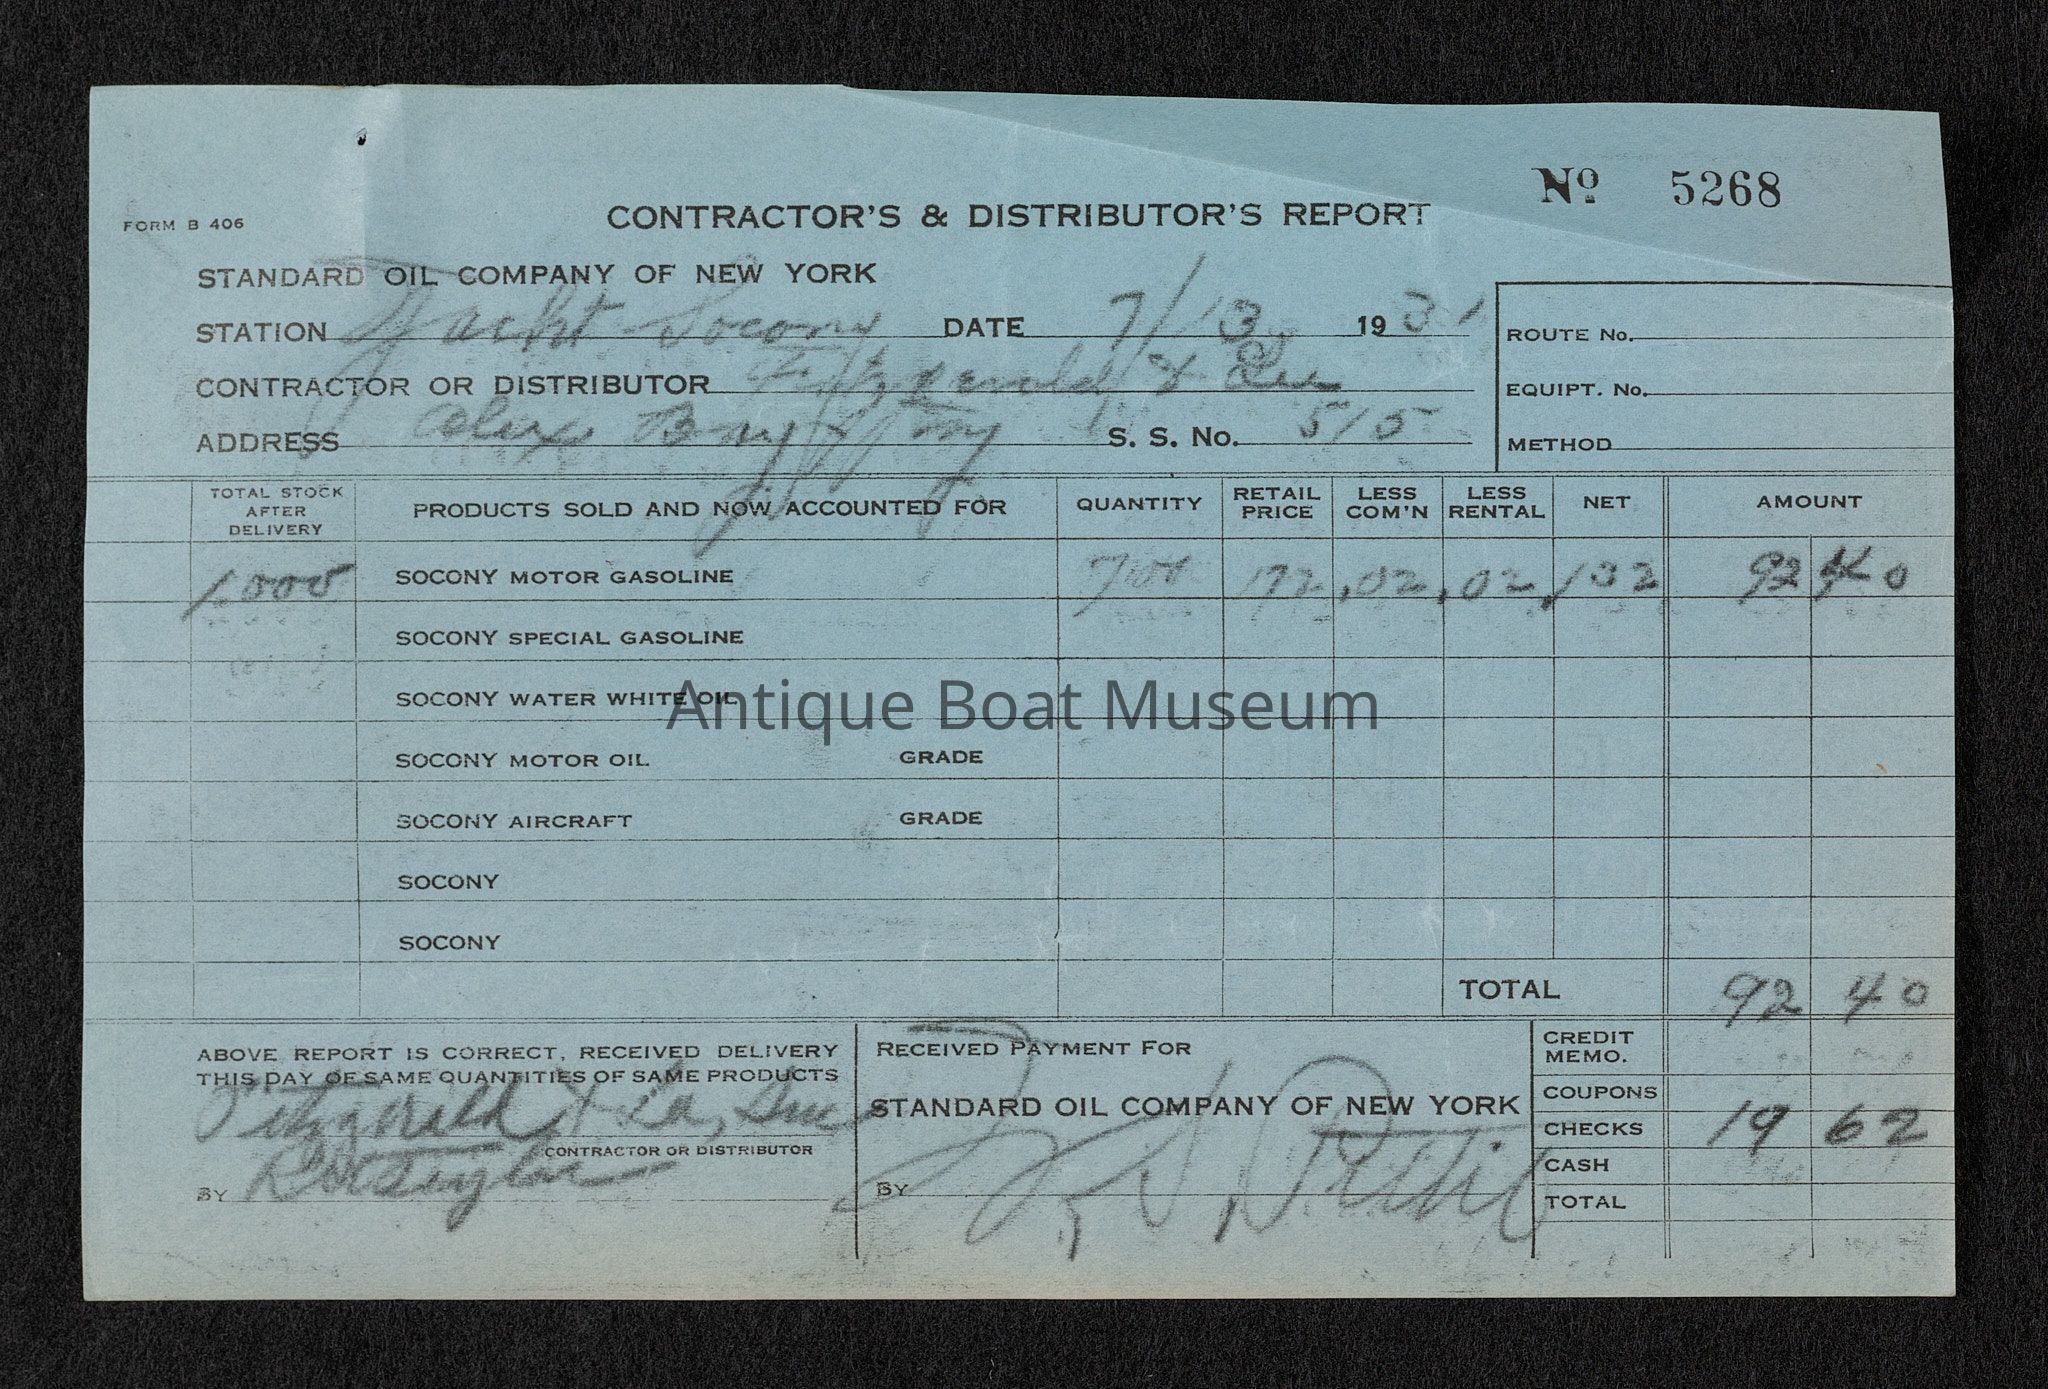 Nº 5268
FORM B 406
CONTRACTOR'S & DISTRIBUTOR'S REPORT
STANDARD OIL COMPANY OF NEW YORK
STATION Yacht Socony DATE 7/13 1931
ROUTE No.
CONTRACTOR OR DISTRIBUTOR Fitzgerald & Lee
EQUIPT. No.
ADDRESS Alex Bay N Y S. S. No. 515
METHOD
TOTAL STOCK AFTER DELIVERY PRODUCTS SOLD AND NOW ACCOUNTED FOR QUANTITY RETAIL PRICE LESS COM'N LESS RENTAL NET AMOUNT
1000 SOCONY MOTOR GASOLINE 700 172 .02 .02 .132 92 40
SOCONY SPECIAL GASOLINE
SOCONY WATER WHITE OIL
Antique Boat Museum
SOCONY MOTOR OIL GRADE
SOCONY AIRCRAFT GRADE
SOCONY
SOCONY
TOTAL 92 40
ABOVE REPORT IS CORRECT, RECEIVED DELIVERY
THIS DAY OF SAME QUANTITIES OF SAME PRODUCTS
Fitzgerald & Lee, Inc
CONTRACTOR OR DISTRIBUTOR
BY
RECEIVED PAYMENT FOR
STANDARD OIL COMPANY OF NEW YORK
BY
CREDIT MEMO.
COUPONS
CHECKS 19 62
CASH
TOTAL